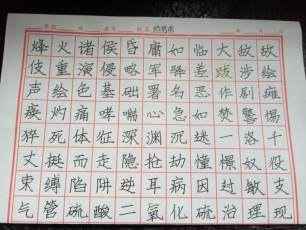 烽火诸侯昏庸如临大敌故
伎重演侵略军殊差跋涉绘
声绘色基础署名恶作剧瘫
痪灼痛哮喘心急如焚警惕
猝死体征深渊沉迷一落千
丈挺而走隐抢劫憧憬奴役
束缚陷阱逆耳病因过敏支
气管硫酸二氧化硫治理现